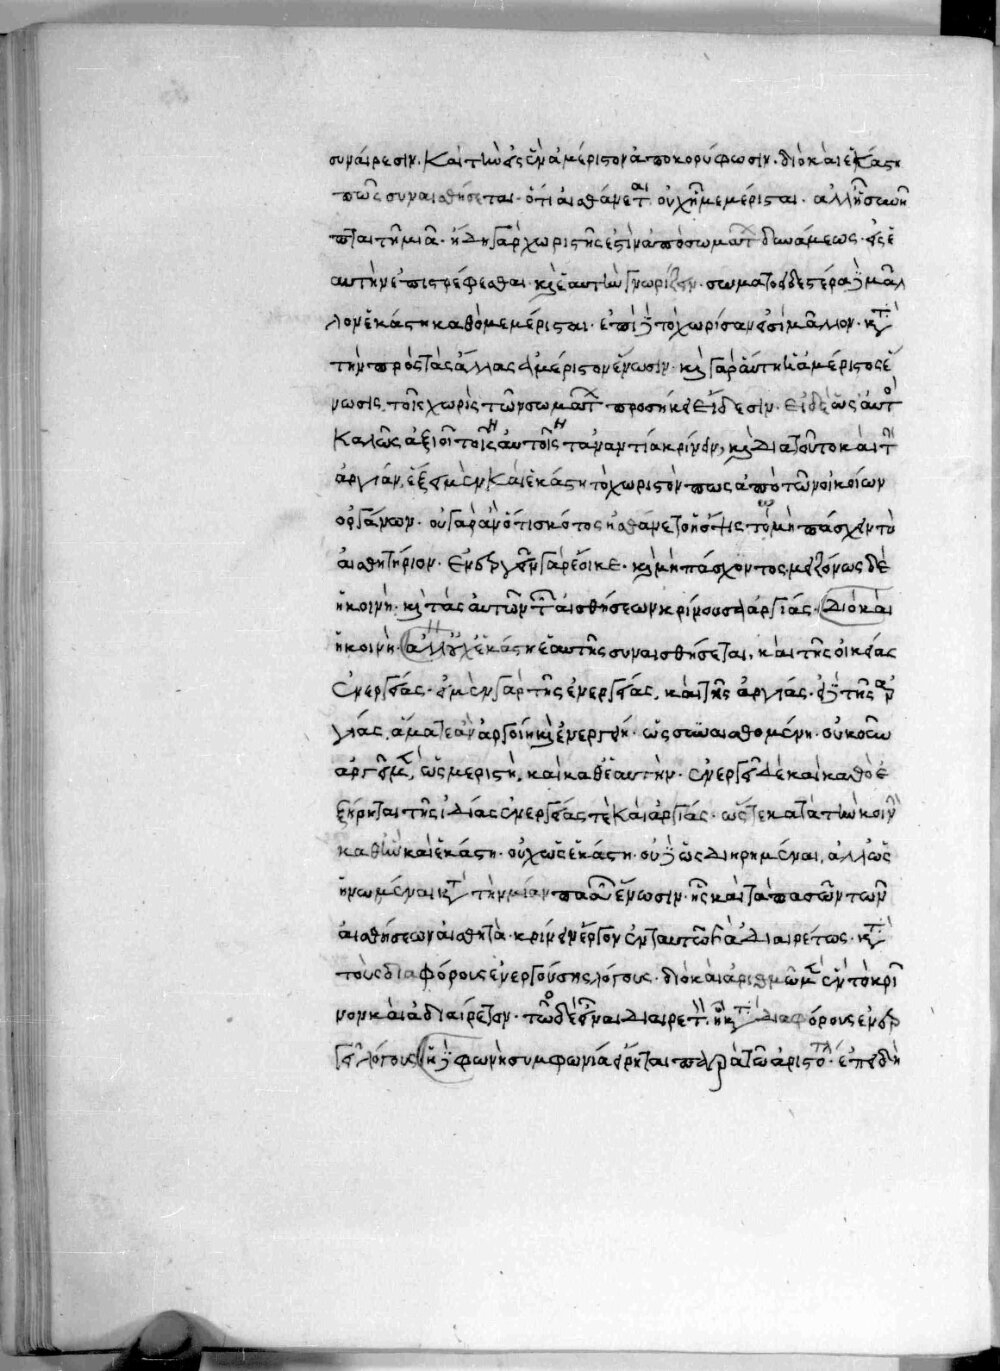 συναίρεσιν. καὶ τὴν εἰς ἓν ἀμέριστον ἀποκορύφωσιν. διὸ καὶ ἑκάστη
πως συναισθήσεται. ὅτι αἰσθάνεται οὐχ ᾗ μεμέρισται. ἀλλ' ᾗ συνῆ
πται τῇ μιᾷ. ἤδη γὰρ χωριστῆς ἐστὶν ἀπὸ σώματ δυνάμεως. εἰς ἑ
αυτὴν ἐπιστρέφεσθαι. καὶ ἑαυτὴν γνωρίζειν. σώματος δὲ ἑτέρα μᾶλ
λον ἑκάστη καθὸ μεμέρισται. ἐπὶ τὸ χωρίσαν εἰσὶ μᾶλλον. κατὰ
τὴν πρὸς τὰς ἄλλας ἀμέριστον ἕνωσιν. καὶ γὰρ αὐτὴ ἡ ἀμέριστος ἕ
νωσις τοῖς χωρὶς τῶν σωμάτ προσήκει εἴδεσιν. εἰ δὲ ὡς αὐτὸ
καλῶς ἀξιοῖ τοῖς αὐτοῖς τἀναντία κρίνειν, καὶ διὰ τοῦτο καὶ τὴν
ἀργίαν, ἕξει μὲν καὶ ἑκάστη τὸ χωριστόν πως ἀπὸ τῶν οἰκείων
ὀργάνων. οὐ γὰρ ἂν ὅτι σκότος ᾐσθάνετο ἡ ὄψις τῷ μὴ πάσχειν τὸ
αἰσθητήριον. ἐνεργεῖν γὰρ ἔοικε. καὶ μὴ πάσχοντος. μειζόνως δὲ
ἡ κοινὴ. καὶ τὰς αὐτῶν τῶν αἰσθήσεων κρίνουσα ἀργίας. διὸ καὶ
ἡ κοινὴ. ἀλλ' οὐχ ἑκάστη ἑαυτῆς συναισθήσεται, καὶ τῆς οἰκείας
ἐνεργείας. ἐν μὲν γὰρ τῆς ἐνεργείας, καὶ τῆς ἀργίας. τῆς ἀρ
γίας, ἅμα τε ἂν ἀργοίη καὶ ἐνεργοίη. ὡς συναισθομένη. οὐκοῦν
ἀργεῖ μὲν, ὡς μεριστὴ, καὶ καθ' ἑαυτὴν. ἐνεργεῖ δὲ καὶ καθὸ ἐ
ξῄρηται τῆς ἰδίας ἐνεργείας τε καὶ ἀργίας. ὥστε κατὰ τὴν κοινὴν
καθ' ἣν καὶ ἑκάστη. οὐχ ὡς ἑκάστη. οὐδ' ὡς διῃρημέναι, ἀλλ' ὡς
ἡνωμέναι κατὰ τὴν μίαν πασῶν ἕνωσιν. ἧς καὶ τὰ πασῶν τῶν
αἰσθήσεων αἰσθητὰ. κρίνειν ἔργον ἐν ταυτῷ ἀδιαιρέτως. κατὰ
τοὺς διαφόρους ἐνεργούσης λόγους. διὸ καὶ ἀριθμῷ μὲν ἓν τὸ κρῖ
νον καὶ ἀδιαίρετον. τῷ δὲ εἶναι διαιρετὸν. ᾗ κατὰ διαφόρους ἐνερ
γεῖ λόγους. ἡ φωνὴ συμφωνία εἴρηται παρὰ τῷ ἀριστο. ἐπειδὴ